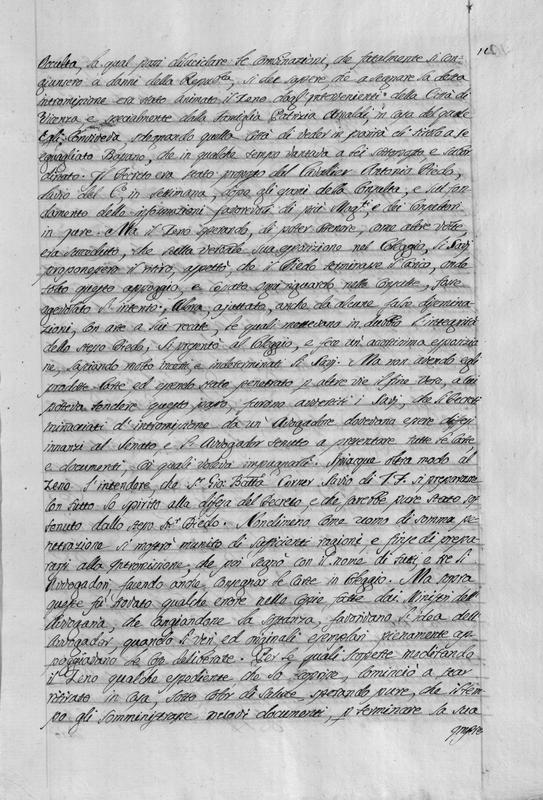 occulta, la qual possi dilucidare le combinazioni, che fatalmente si con-
giunsero a danni della Repub.ca, si dee sapere che a segnare la detta
intromissione era stato animato il Zeno dagl'intervenienti della Città di
Vicenza e specialmente dalla Famiglia Patrizia Arnaldi in casa del quale
Egli conviveva, sdegnando quella Città di veder in parità di titolo a se
eguagliato Bassano, che in qualche tempo vantava a lei
dinato. Il Decreto era stato proposto dal Cavalier Antonio Priedo,
Savio del C.o in settimana, dopo gli esami della Consulta, e sul fon-
damento delle informazioni favorevoli di più Mag.ti e dei Consultori
in jure. Ma il Zeno sperando, di poter ottenere, come altre volte
era succeduto, che nella verbale sua esposizione nel Collegio, li Savj
proponessero il ritiro, aspettò, che il Priedo terminasse il carico, onde
tolto questo appoggio, e cessato ogni riguardo nelle Consulte, fosse
agevolato l'intento. Allora, ajutato, anche da alcune false disemina-
zioni, con arte a lui recate, le quali mettevano in dubbio l'integrità
dello stesso Priedo, si presentò al Collegio, e fece un' esposizio-
ne, lasciando molto incerti, e indeterminati li Savj. Ma non avendo egli
prodotte Carte ed essendo stato penetrato p altre vie il fine vero, a cui
poteva tendere questo passo, furono avvertiti i Savj, che li Decreti
minacciati d'intromissione da un' Avogadore dovevano essere difesi
innanzi al Senato e l'Avogador tenuto a presentare tutte le Carte
e documenti, coi quali voleva impugnarli. Spiacque oltre modo al
Zeno l'intendere che S.r Gio: Batta Corner Savio di T. F. si preparasse
con tutto lo spirito alla difesa del Decreto, e che sarebbe pure stato sos-
tenuto dallo stesso K.r Priedo. Nondimeno come uomo di somma pe-
netrazione si mostrò munito di sufficienti ragioni, e finse di prepa-
rarsi alla intromissione, che poi segnò con il nome di tutti e tre li
Avogadori, facendo anche consegnar le Carte in Collegio. Ma sopra
queste fu trovato qualche errore nelle copie fatte dai Ministri dell'
Avogaria, che cangiandone la sostanza, favorivano l'idea dell'
Avogador, quando li veri ed originali esemplari pienamente ap-
poggiavano le cose deliberate. Per le quali scoperte meditando
il Zeno qualche espediente che lo coprisse, cominciò a star
ritirato in Casa, sotto color di Salute, sperando pure, che il tem-
po gli somministrasse nuovi documenti, p terminare la sua